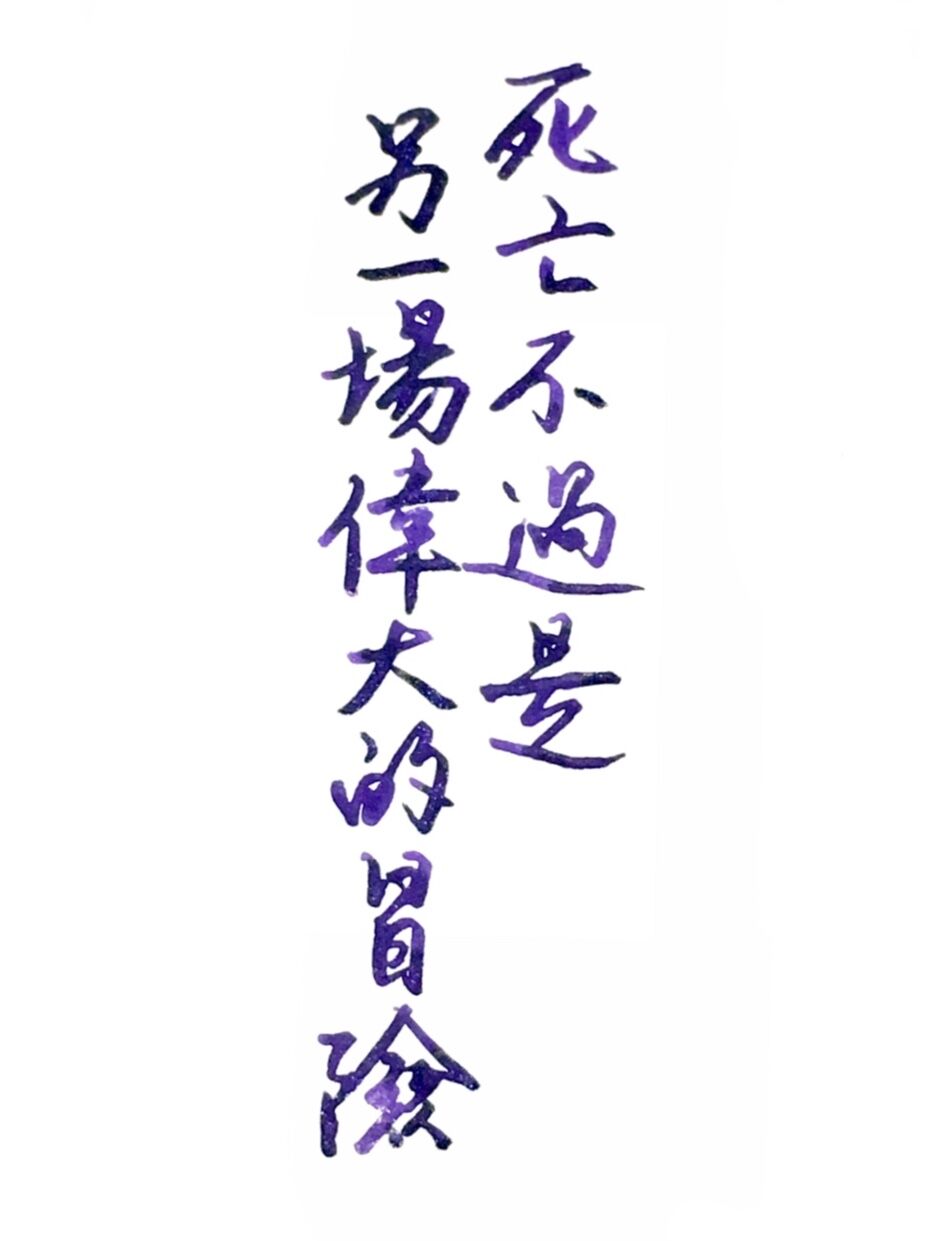 死亡不過是
另一場偉大的冒險